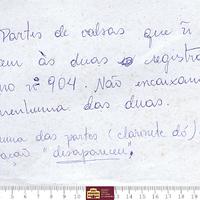 Partes de valsas que ñ
em às duas registra
no nº 904. Não encaixam
nenhuma das duas.
uma das partes (clarinete dó)
ação "desapareceu",